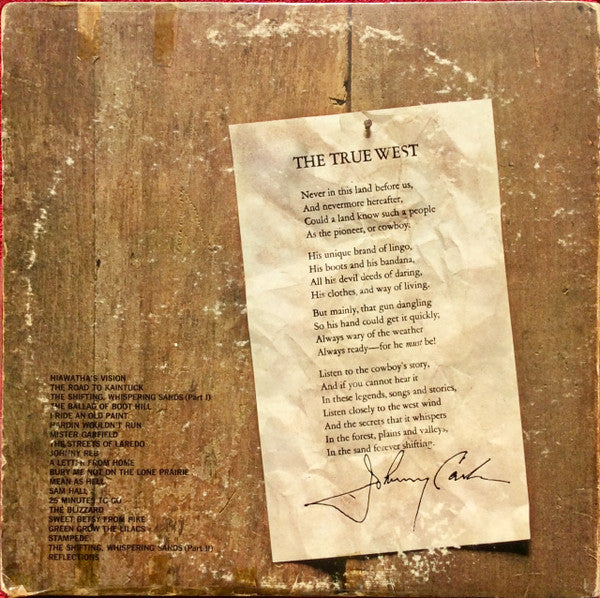 THE TRUE WEST
Never in this land before us,
And nevermore hereafter,
Could a land know such a people
As the pioneer, or cowboy.
His unique brand of lingo,
His boots and his bandana,
All his devil deeds of daring,
His clothes, and way of living.
But mainly, that gun dangling
So his hand could get it quickly;
Always wary of the weather
Always ready—for he must be!
Listen to the cowboy's story,
And if you cannot hear it
In these legends, songs and stories,
Listen closely to the west wind
And the secrets that it whispers
In the forest, plains and valleys,
In the sand forever shifting.
Johnny Cash
HIAWATHA'S VISION
THE ROAD TO KAINTUCK
THE SHIFTING, WHISPERING SANDS (Part I)
THE BALLAD OF BOOT HILL
I RIDE AN OLD PAINT
HARDIN WOULDN'T RUN
MISTER GARFIELD
THE STREETS OF LAREDO
JOHNNY REB
A LETTER FROM HOME
BURY ME NOT ON THE LONE PRAIRIE
MEAN AS HELL
SAM HALL
25 MINUTES TO GO
THE BLIZZARD
SWEET BETSY FROM PIKE
GREEN GROW THE LILACS
STAMPEDE
THE SHIFTING, WHISPERING SANDS (Part II)
REFLECTIONS